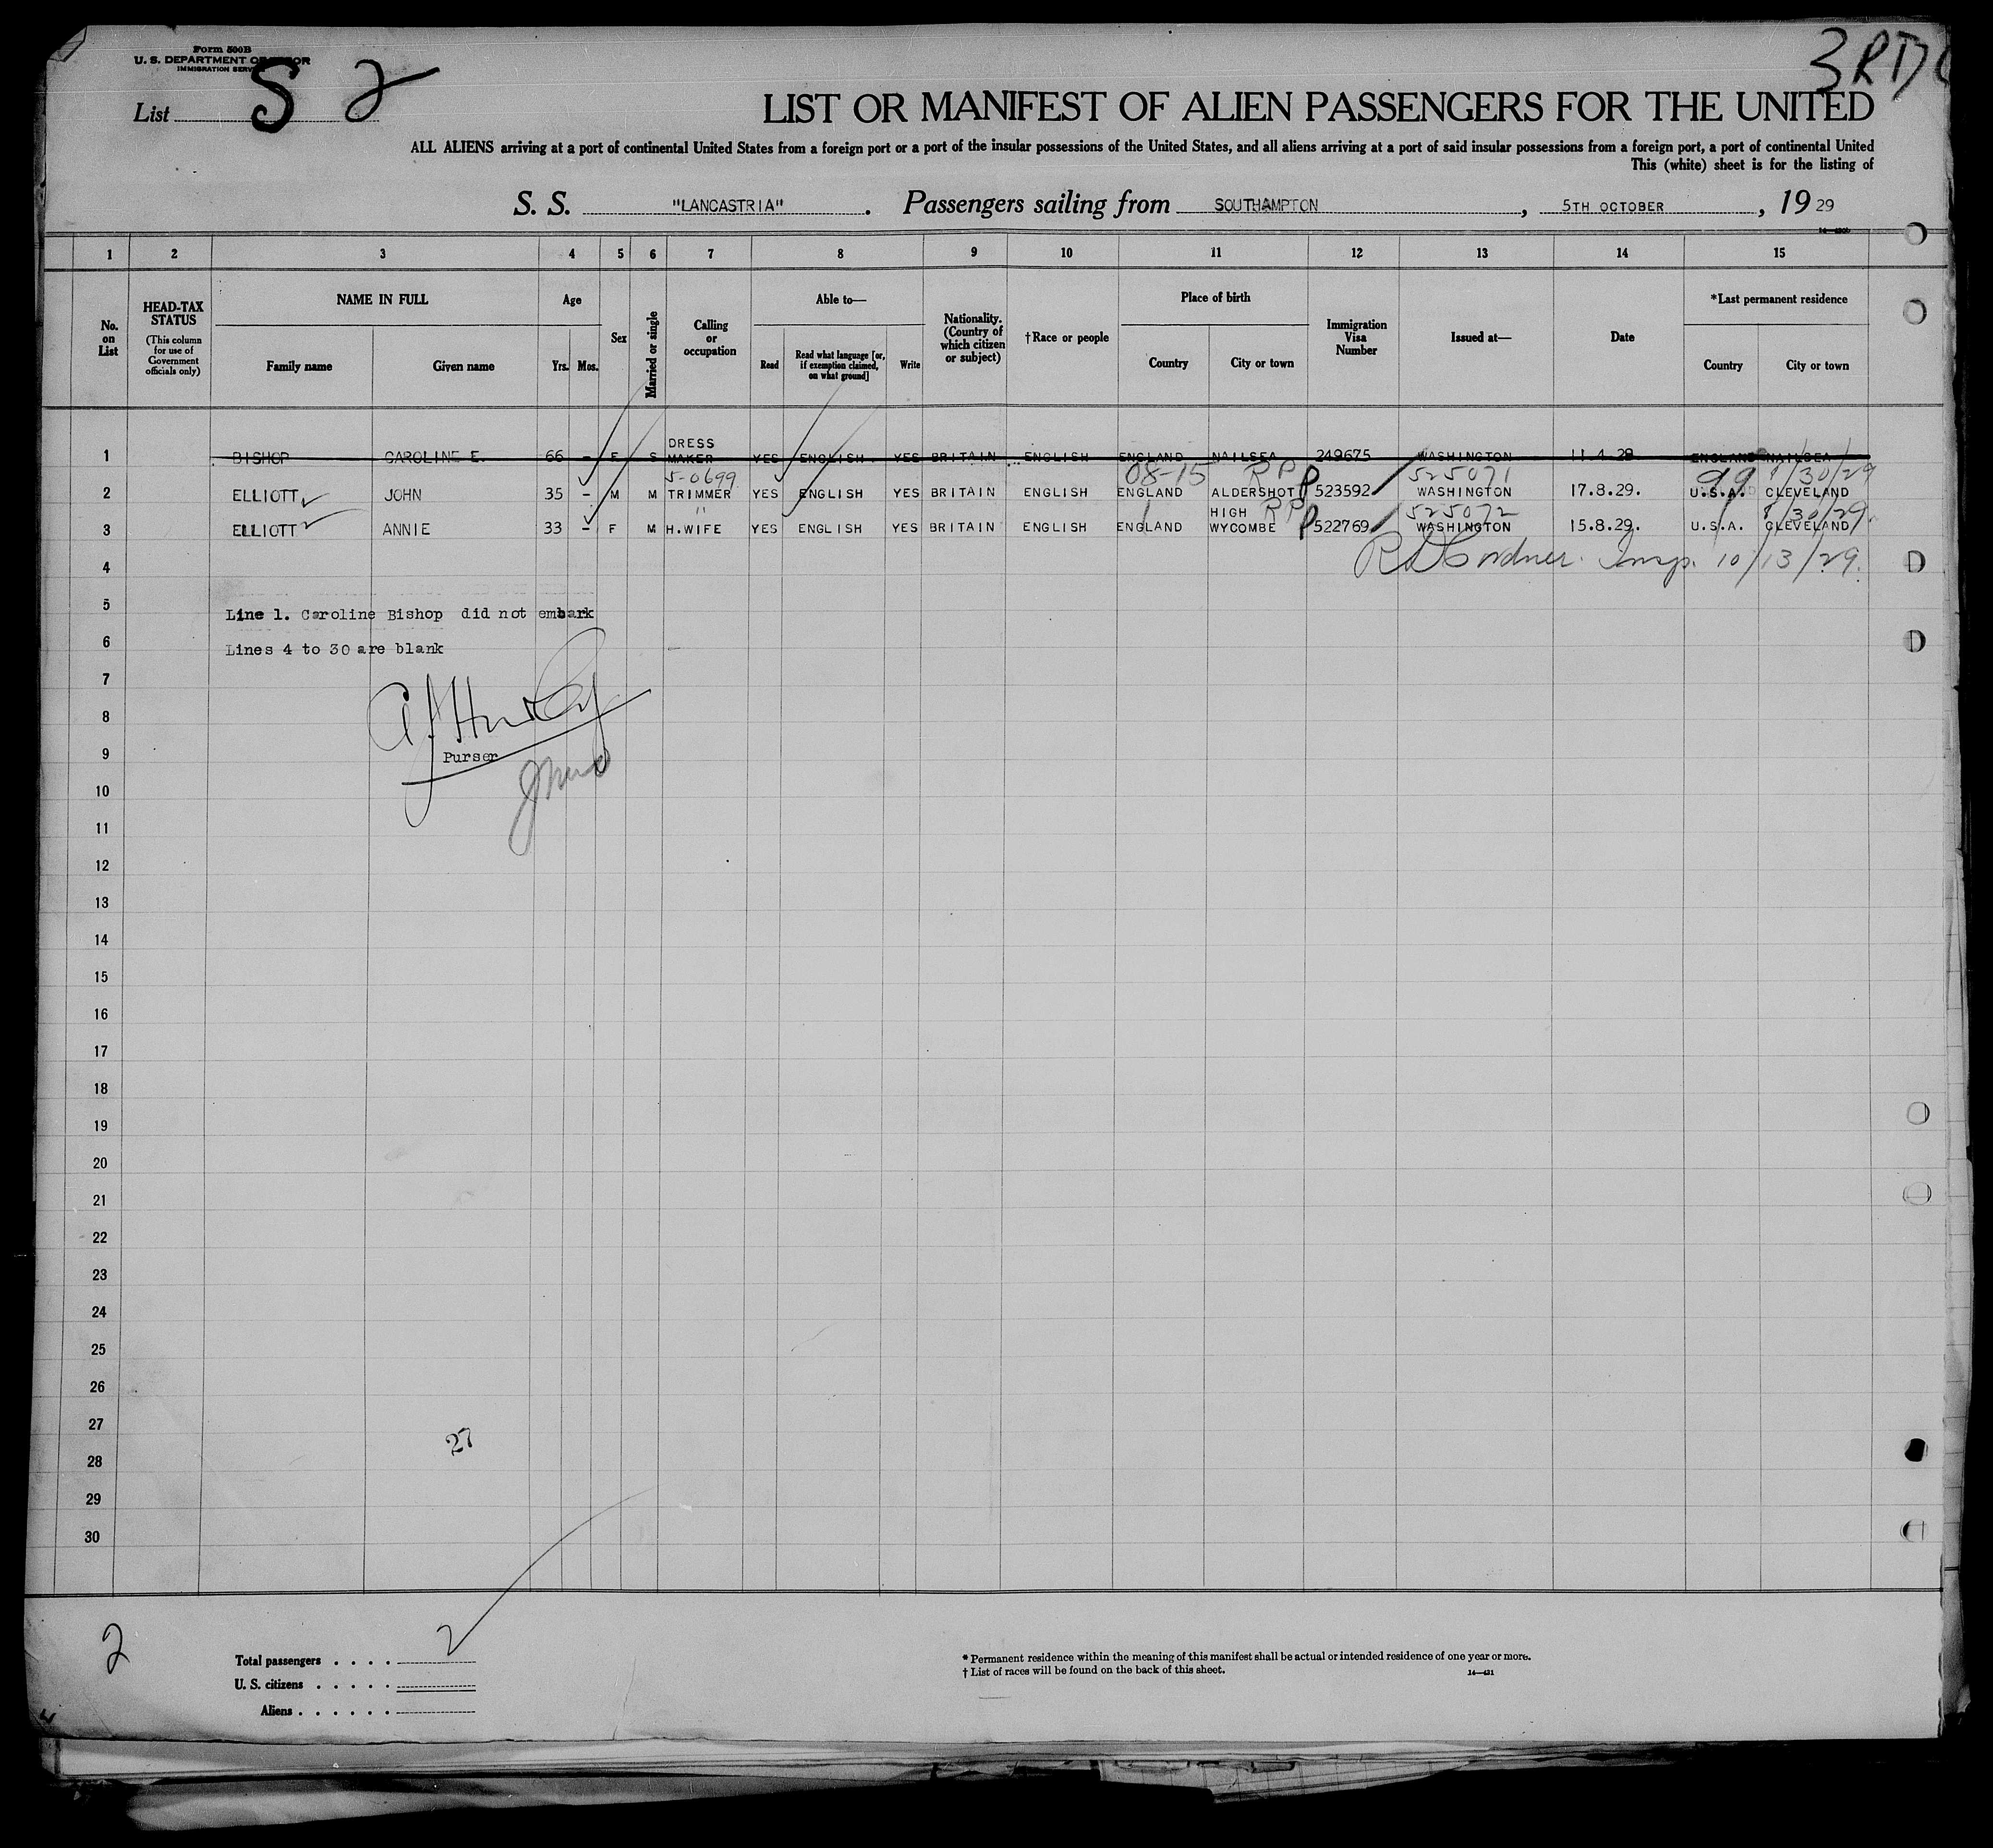 Form 500B
U. S. DEPARTMENT OF LABOR
IMMIGRATION SERVICE
3RD
List S 2
LIST OR MANIFEST OF ALIEN PASSENGERS FOR THE UNITED
ALL ALIENS arriving at a port of continental United States from a foreign port or a port of the insular possessions of the United States, and all aliens arriving at a port of said insular possessions from a foreign port, a port of continental United
This (white) sheet is for the listing of
S. S. "LANCASTRIA". Passengers sailing from SOUTHAMPTON, 5TH OCTOBER, 19 29
1 2 3 4 5 6 7 8 9 10 11 12 13 14 15
No. on List
HEAD-TAX STATUS
(This column for use of Government officials only)
NAME IN FULL
Family name Given name
Age
Yrs. Mos.
Sex
Married or single
Calling or occupation
Able to—
Read Read what language [or, if exemption claimed, on what ground] Write
Nationality. (Country of which citizen or subject)
†Race or people
Place of birth
Country City or town
Immigration Visa Number
Issued at—
Date
*Last permanent residence
Country City or town
1 BISHOP CAROLINE E. 66 - F S DRESS MAKER YES ENGLISH YES BRITAIN ENGLISH ENGLAND NAILSEA 249675 WASHINGTON 11.4.29 ENGLAND NAILSEA
5-0699 08-15 RP 525071 99 8/30/29
2 ELLIOTT JOHN 35 - M M TRIMMER YES ENGLISH YES BRITAIN ENGLISH ENGLAND ALDERSHOT P 523592 WASHINGTON 17.8.29. U.S.A. CLEVELAND
" RP 525072 8/30/29.
3 ELLIOTT ANNIE 33 - F M H.WIFE YES ENGLISH YES BRITAIN ENGLISH ENGLAND HIGH WYCOMBE P 522769 WASHINGTON 15.8.29. U.S.A. CLEVELAND
4 Insp. 10/13/29.
5 Line 1. Caroline Bishop did not embark
6 Lines 4 to 30 are blank
7
8
9 Purser
10
11
12
13
14
15
16
17
18
19
20
21
22
23
24
25
26
27
27
28
29
30
2
Total passengers . . . . 2
U. S. citizens . . . . .
Aliens . . . . . .
* Permanent residence within the meaning of this manifest shall be actual or intended residence of one year or more.
† List of races will be found on the back of this sheet.